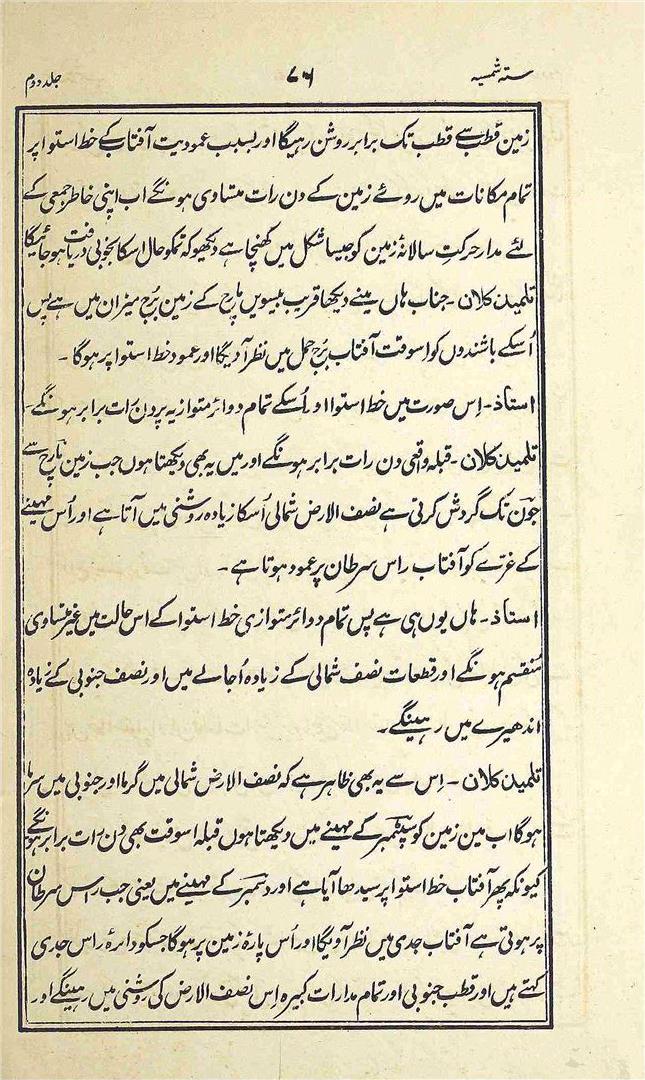 ستہ شمسیہ ۷۶ جلد دوم
زمین قطب سے قطب تک برابر روشن رہیگا اور بسبب عمودیت آفتاب کے خط استوا پر
تمام مکانات میں روئے زمین کے دن رات متساوی ہونگے اب اپنی خاطر جمعی کے
لئے مدار حرکتِ سالانۂ زمین کو جیسا شکل میں کھنچا ہے دیکھو کہ تمکو حال اسکا بخوبی دریافت ہو جائیگا
تلمیذ کلان ۔ جناب ہاں مینے دیکھا قریب بیسویں مارچ کے زمین برج میزان میں ہے پس
اُسکے باشندوں کو اسوقت آفتاب برج حمل میں نظر آویگا اور عمود خط استوا پر ہوگا ۔
استاذ ۔ اِس صورت میں خط استوا اور اُسکے تمام دوائر متوازیہ پر دن رات برابر ہونگے ۔
تلمیذ کلان ۔ قبلہ واقعی دن رات برابر ہونگے اور میں یہ بھی دیکھتا ہوں جب زمین مارچ سے
جون تک گردش کرتی ہے نصف الارض شمالی اُسکا زیادہ روشنی میں آتا ہے اور اُس مہینے
کے غرے کو آفتاب راس سرطان پر عمود ہوتا ہے ۔
استاذ ۔ ہاں یوں ہی ہے پس تمام دوائر متوازی خط استوا کے اس حالت میں غیر متساوی
منقسم ہونگے اور قطعات نصف شمالی کے زیادہ اُجالے میں اور نصف جنوبی کے زیادہ
اندھیرے میں رہینگے ۔
تلمیذ کلان ۔ اِس سے یہ بھی ظاہر ہے کہ نصف الارض شمالی میں گرما اور جنوبی میں سرما
ہوگا اب مین زمین کو سپٹمبر کے مہینے میں دیکھتا ہوں قبلہ اسوقت بھی دن رات برابر ہونگے
کیونکہ پھر آفتاب خط استوا پر سیدھا آیا ہے اور دسمبر کے مہینے میں یعنی جب راس سرطان
پر ہوتی ہے آفتاب جدی میں نظر آویگا اور اُس پارۂ زمین پر ہوگا جسکو دائرۂ راس جدی
کہتے ہیں اور قطب جنوبی اور تمام مدارات کبیرہ اِس نصف الارض کی روشنی میں رہینگے اور